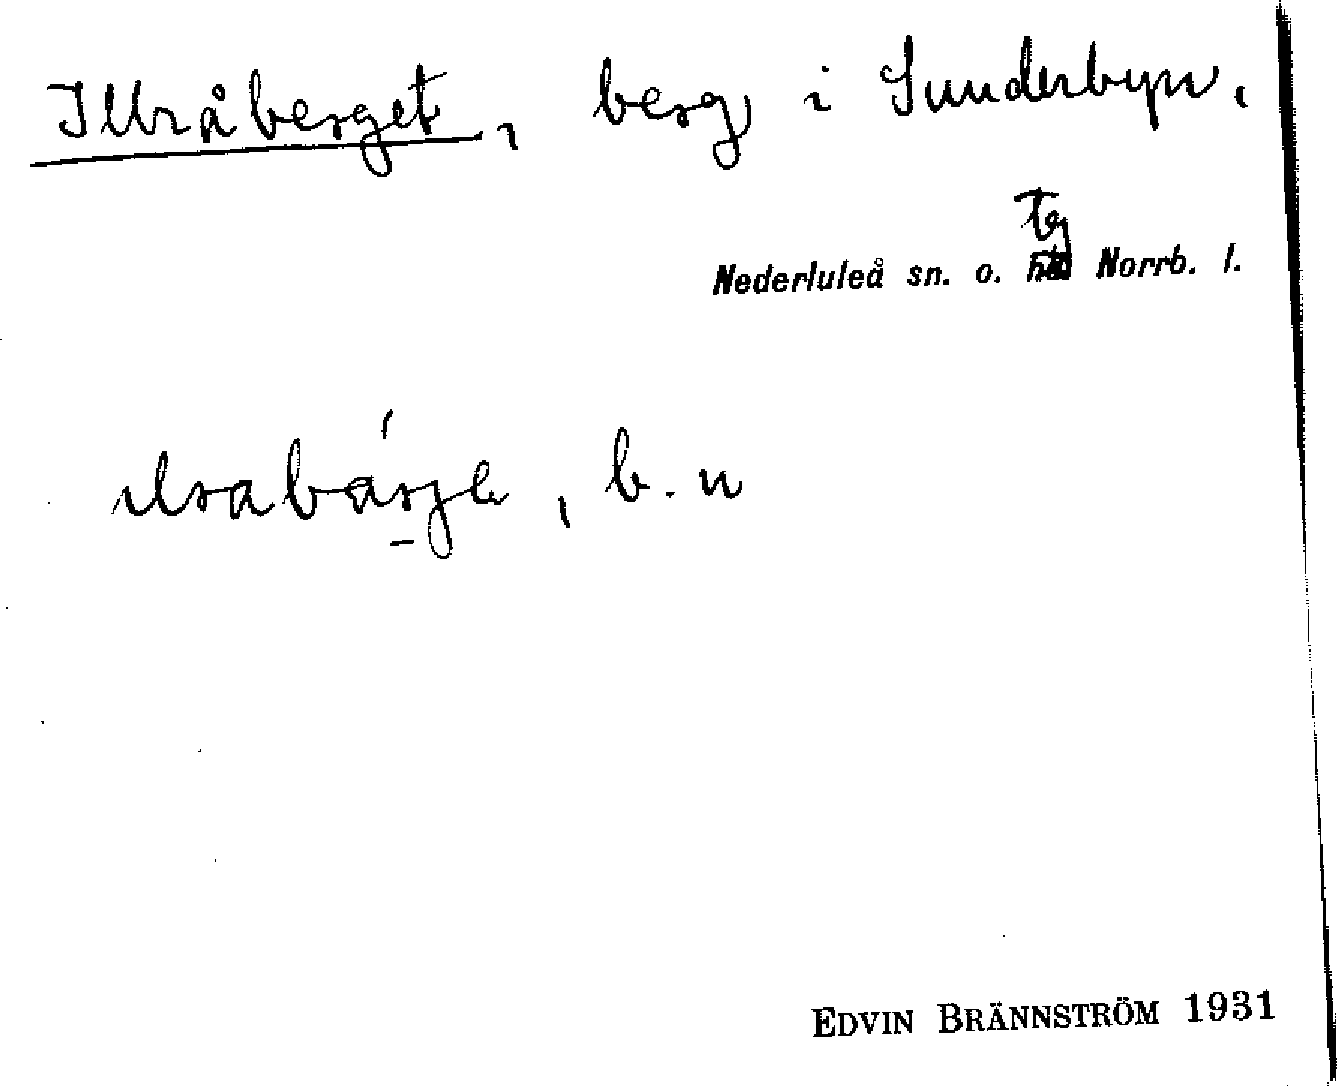 Illråberget, berg i Sunderbyn.
tg
Nederluleå sn. o. Norrb. l.
ılrabásje, b. n
EDVIN BRÄNNSTRÖM 1931